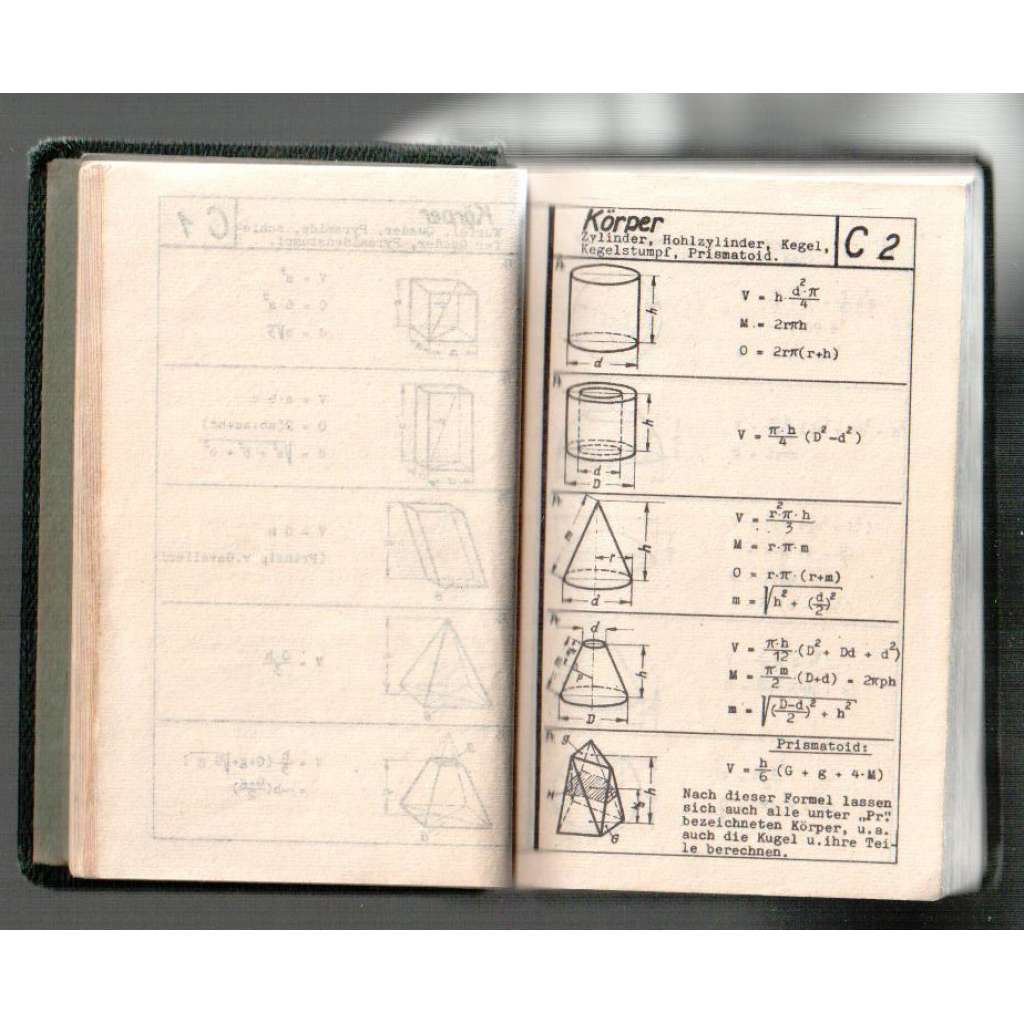 Körper
Zylinder, Hohlzylinder, Kegel,
Kegelstumpf, Prismatoid.
C 2
h
d
V = h d²·π/4
M = 2rπh
O = 2rπ(r+h)
h
d
D
V = π·h/4 (D²-d²)
m
r
h
d
V = r²·π·h/3
M = r·π·m
O = r·π·(r+m)
m = √(h² + (d/2)²)
d
m
p
h
D
V = π·h/12 (D² + Dd + d²)
M = π·m/2 (D+d) = 2πph
m = √((D-d/2)² + h²)
g
M
h
G
Prismatoid:
V = h/6 (G + g + 4·M)
Nach dieser Formel lassen
sich auch alle unter „Pr."
bezeichneten Körper, u.a.
auch die Kugel u.ihre Tei-
le berechnen.